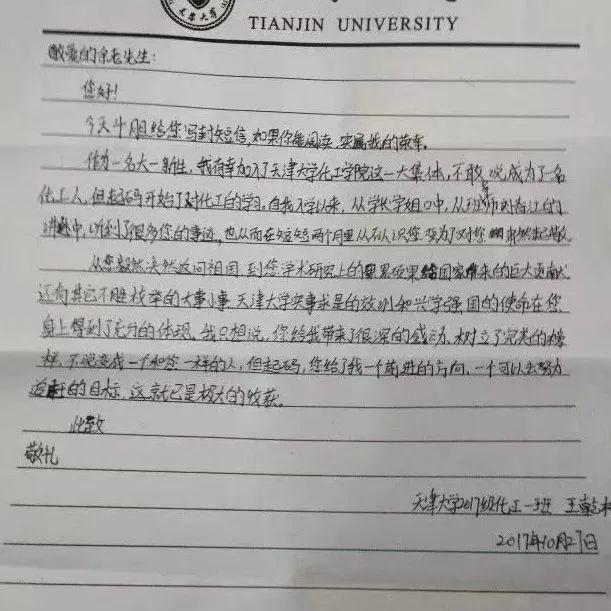 天津大学
TIANJIN UNIVERSITY
敬爱的余老先生:
您好!
今天斗胆给您写封短信,如果你能阅读,实属我的荣幸。
作为一名大一新生,我有幸加入了天津大学化工学院这一大集体,不敢说成为了一名
化工人,但起码开始了对化工的学习。自我入学以来,从学长学姐口中,从刘春江的
讲中,听到了很多您的事迹,也从而在短短两个月里从不认识您变为了对您肃然起敬。
从您毅然决然返回祖国,到您学术研究上的累累硕果给国家带来的巨大贡献,
还有其它不胜枚举的大事小事,天津大学实事求是的校训和兴学强国的使命在您
身上得到了充分的体现。我只想说,您给我带来了很深的感动,树立了完美的榜
样,不说变成一个和您一样的人,但起码,您给了我一个前进的方向,一个可以去努力
追赶的目标,这就已是极大的收获。
此致
敬礼
天津大学2017级化工一班 王乾
2017年10月27日